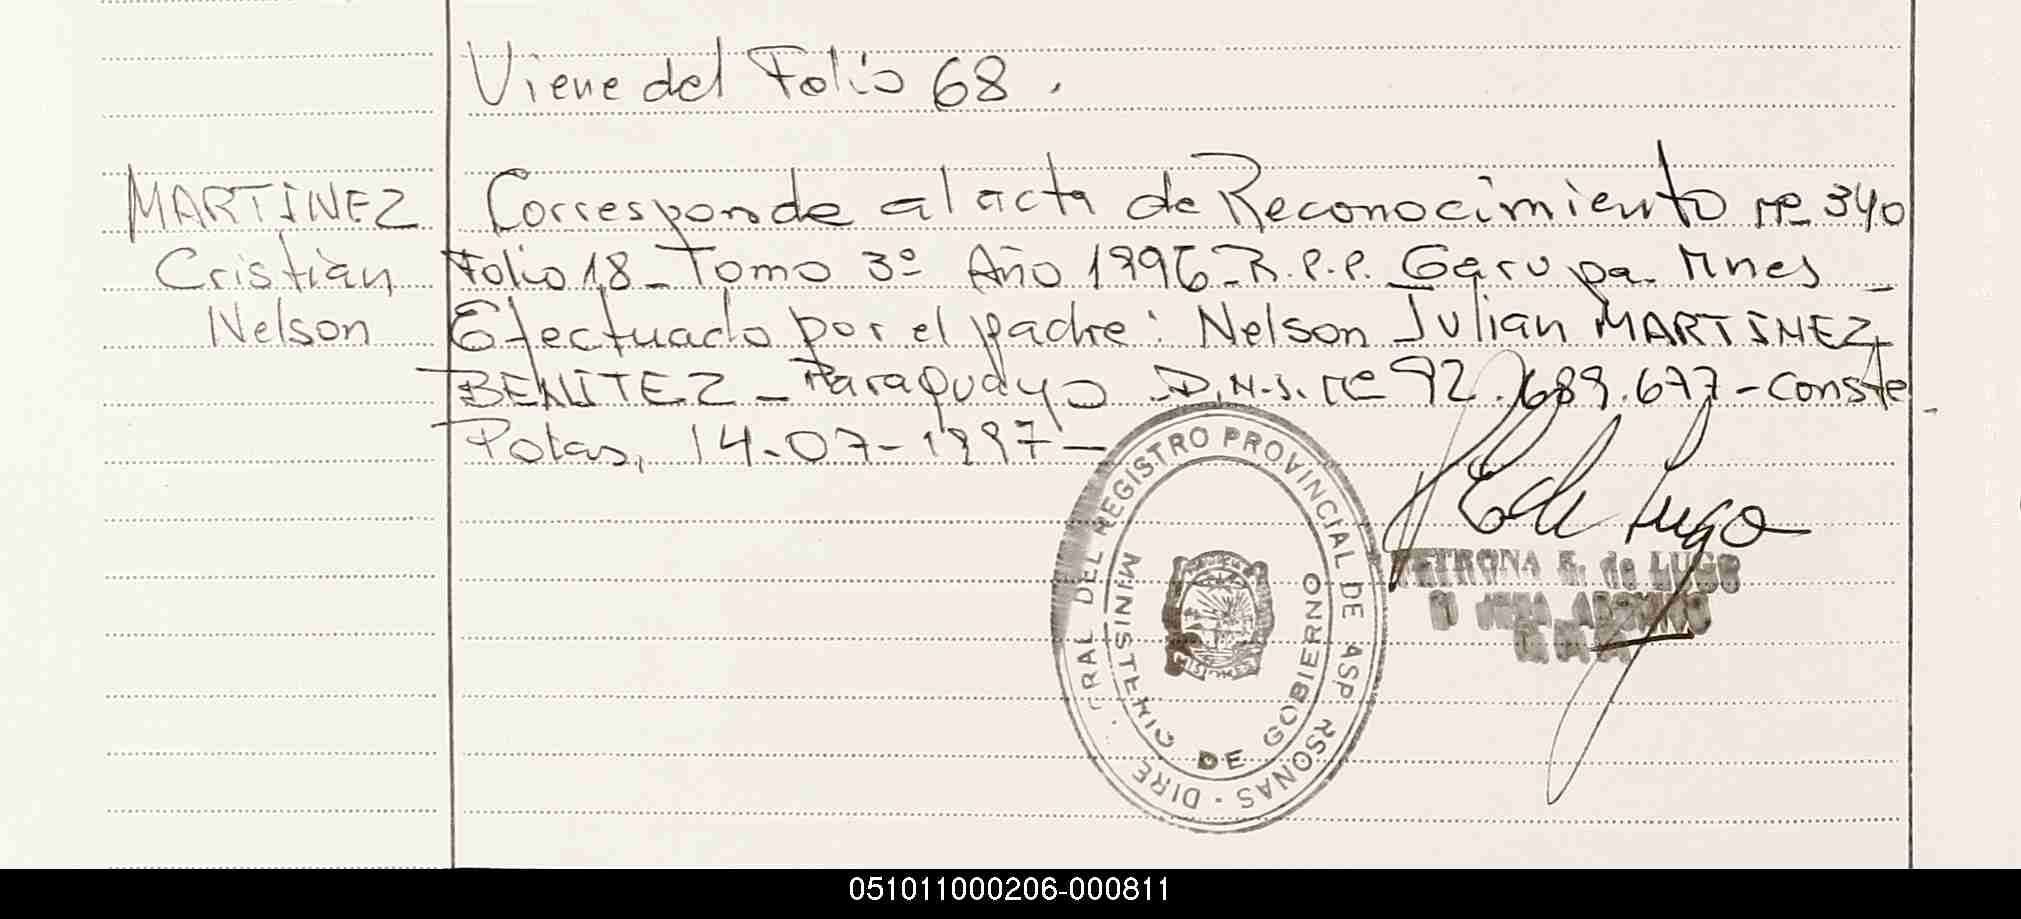 Viene del Folio 68.
MARTINEZ
Cristian
Nelson
Corresponde al acta de Reconocimiento nº 340
Folio 18 - Tomo 3º Año 1996 - R.P.P. Garupa - Mnes -
Efectuado por el padre: Nelson Julian MARTINEZ
BENITEZ - Paraguayo - D.N.I. nº 92.689.677 - Conste -
Potas, 14-07-1997 -
REGISTRO PROVINCIAL DE
MINISTERIO DE GOBIERNO
MISIONES
de Lugo
PETRONA E. de LUGO
051011000206-000811